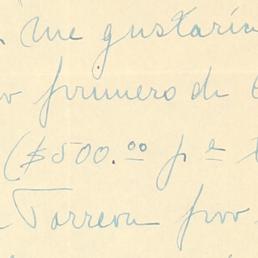 me gustaría
primero de
($500.00 pa
Torreon por